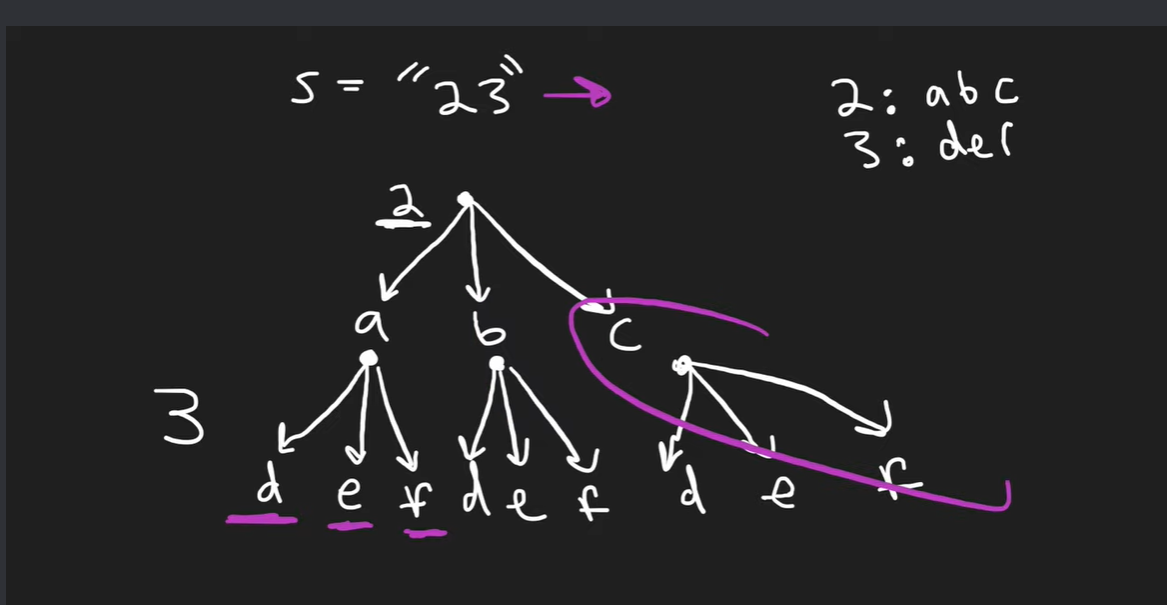 S = "23"
2: abc
3: def
2
a b c
3
d e f d e f d e f